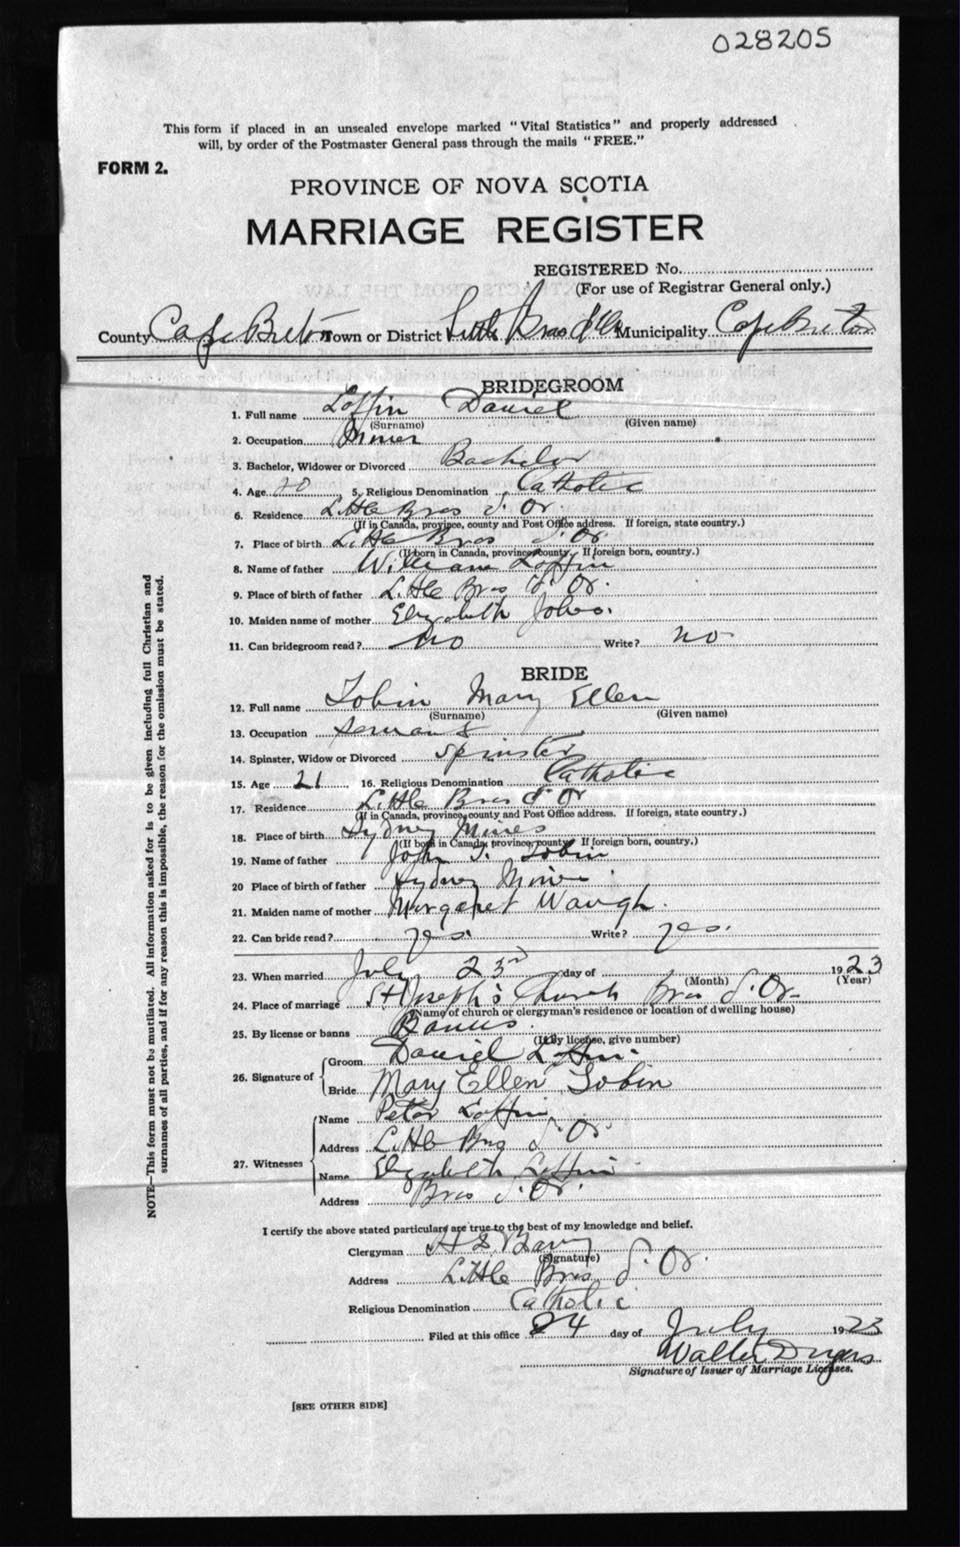 028205
This form if placed in an unsealed envelope marked "Vital Statistics" and properly addressed
will, by order of the Postmaster General pass through the mails "FREE."
FORM 2.
PROVINCE OF NOVA SCOTIA
MARRIAGE REGISTER
REGISTERED No.
(For use of Registrar General only.)
County Cape Breton Town or District Little Bras d'Or Municipality Cape Breton
BRIDEGROOM
1. Full name Loffin Daniel
(Surname) (Given name)
2. Occupation Miner
3. Bachelor, Widower or Divorced Bachelor
4. Age 20 5. Religious Denomination Catholic
6. Residence Little Bras d'Or
(If in Canada, province, county and Post Office address. If foreign, state country.)
7. Place of birth Little Bras d'Or
(If born in Canada, province, county. If foreign born, country.)
8. Name of father William Loffin
9. Place of birth of father Little Bras d'Or.
10. Maiden name of mother Elizabeth
11. Can bridegroom read? No Write? no
BRIDE
12. Full name Tobin Mary Ellen
(Surname) (Given name)
13. Occupation Servant
14. Spinster, Widow or Divorced Spinster
15. Age 21 16. Religious Denomination Catholic
17. Residence Little Bras d'Or
(If in Canada, province, county and Post Office address. If foreign, state country.)
18. Place of birth Sydney Mines
(If born in Canada, province, county. If foreign born, country.)
19. Name of father John Tobin
20 Place of birth of father Sydney Mines
21. Maiden name of mother Margaret Waugh.
22. Can bride read? yes. Write? yes.
23. When married July 23rd day of 1923
(Month) (Year)
24. Place of marriage St Joseph's Church Bras d'Or
(Name of church or clergyman's residence or location of dwelling house)
25. By license or banns Banns.
(If by license, give number)
26. Signature of
Groom Daniel Loffin.
Bride Mary Ellen Tobin
27. Witnesses
Name Peter Loffin
Address Little Bras d'Or
Name Elizabeth Loffin
Address Bras d'Or.
I certify the above stated particulars are true to the best of my knowledge and belief.
Clergyman
(Signature)
Address Little Bras d'Or.
Religious Denomination Catholic
Filed at this office 24 day of July 1923
Walter
Signature of Issuer of Marriage Licenses.
[SEE OTHER SIDE]
NOTE—This form must not be mutilated. All information asked for is to be given including full Christian and
surnames of all parties, and if for any reason this is impossible, the reason for the omission must be stated.